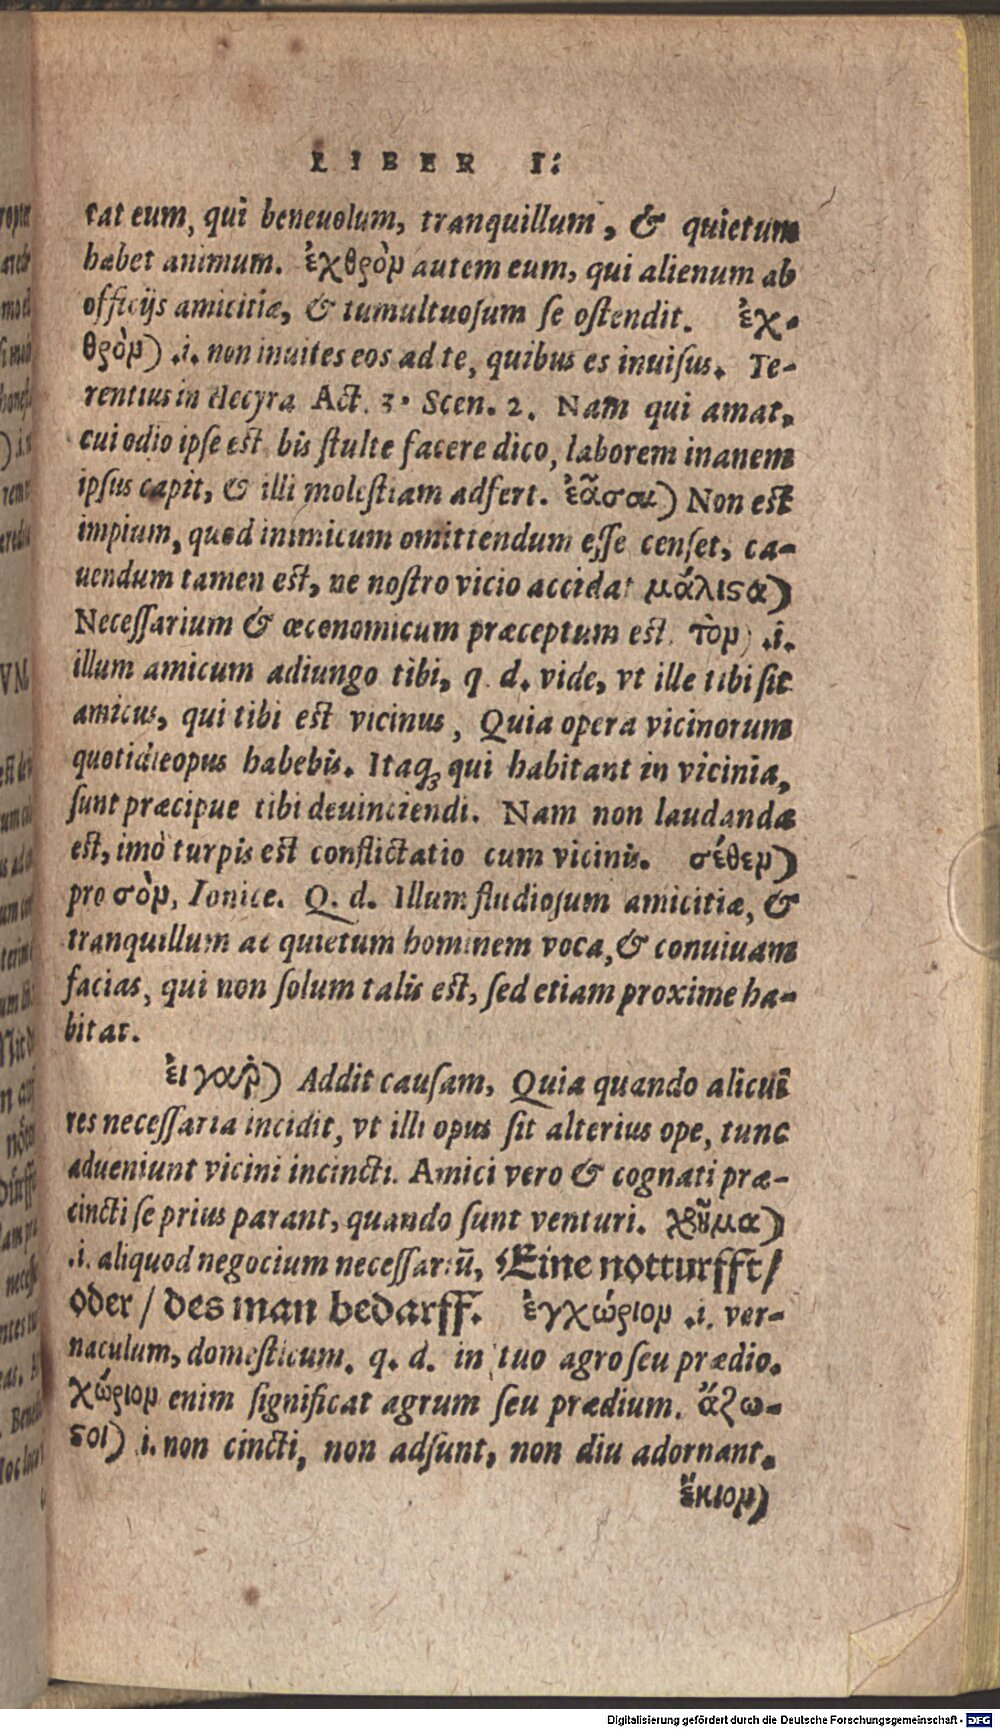 LIBER I:
tat eum, qui beneuolum, tranquillum, & quietum
habet animum. ἐχθρὸν autem eum, qui alienum ab
officijs amicitiæ, & tumultuosum se ostendit. ἐχ-
θρὸν) .i. non inuites eos ad te, quibus es inuisus. Te-
rentius in Hecyra Act. 3. Scen. 2. Nam qui amat,
cui odio ipse est, bis stulte facere dico, laborem inanem
ipsus capit, & illi molestiam adfert. ἐᾶσαι) Non est
impium, quod inimicum omittendum esse censet, ca-
uendum tamen est, ne nostro vicio accidat μάλιϛα)
Necessarium & œconomicum præceptum est. τὸν) .i.
illum amicum adiungo tibi, q. d. vide, vt ille tibi sit
amicus, qui tibi est vicinus, Quia opera vicinorum
quotidie opus habebis. Itaq́ꝫ qui habitant in vicinia,
sunt præcipue tibi deuinciendi. Nam non laudanda
est, imò turpis est conflictatio cum vicinis. σέθεν)
pro σὸν, Ionice. Q. d. Illum studiosum amicitiæ, &
tranquillum ac quietum hominem voca, & conuiuam
facias, qui non solum talis est, sed etiam proxime ha-
bitat.
ἐι γαρ̀) Addit causam, Quia quando alicui
res necessaria incidit, vt illi opus sit alterius ope, tunc
adueniunt vicini incincti. Amici vero & cognati præ-
cincti se prius parant, quando sunt venturi. χρῆμα)
.i. aliquod negocium necessariū, Eine notturfft/
oder / des man bedarff. ἐγχώριον .i. ver-
naculum, domesticum. q. d. in tuo agro seu prædio.
χώριον enim significat agrum seu prædium. ἄζω-
ϛοι) .i. non cincti, non adsunt, non diu adornant.
ἔκιον)
Digitalisierung gefördert durch die Deutsche Forschungsgemeinschaft - DFG